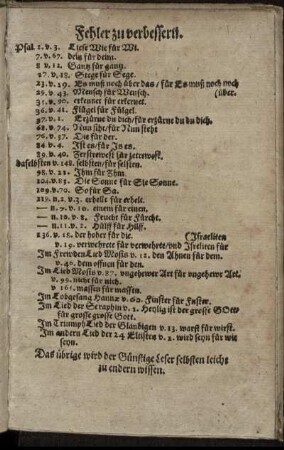 Fehler zu verbessern.
Psal. 2. v. 3. Liese Wie für Wi.
7. v. 67. dein für deim.
8 v. 12. Gantz für gantz.
17. v. 18. Stege für Sege.
23. v. 29. Es muß noch über das / für Es muß noch noch
29. v. 43. Mensch für Wensch. (über.
31. v. 90. erkennet für erkenet.
36. v. 41. Flügel für Fülgel.
37. v. 1. Erzürne du dich / für erzürne du du dich.
68. v. 74. Nun siht / für Nun steht
76. v. 37. Die für der.
84. v. 4. Ist en / für In en.
89. v. 40. Zerstrewest für zetrewest.
daselbsten v. 148. selbsten / für selsten.
98. v. 21. Ihm für Jhm.
104. v. 83. Die Sonne für Sie Sonne.
109. v. 70. So für Sa.
119. n. 2. v. 3. erhelt für erhelt.
— n. 7. v. 10. einem für einen.
— n. 10. v. 2. Frucht für Fürcht.
— n. 11. v. 2. Hülff für Hiff.
136. v. 16. der hoher für die. (Israeliten
v. 19. verwehrete für verwehrte / und Isreliten für
Im Frewden Lied Mosis v. 12. den Ahnen für dem.
v. 40. dem offnen für den.
Im Lied Mosis v. 87. ungehewer Art für ungehewr Art.
v. 99. nicht für nich.
v. 161. massen für massen.
Im Lobgesang Hannæ v. 60. Finster für Fnster.
Im Lied der Seraphin v. 1. Heylig ist der grosse GOtt
für grosse grosse Gott.
Im Triumph Lied der Glaubigen v. 13. warst für wirst.
Im andern Lied der 24 Elisten v. 2. wird seyn für wit
seyn.
Das übrige wird der Günstige Leser selbsten leicht
zu endern wissen.